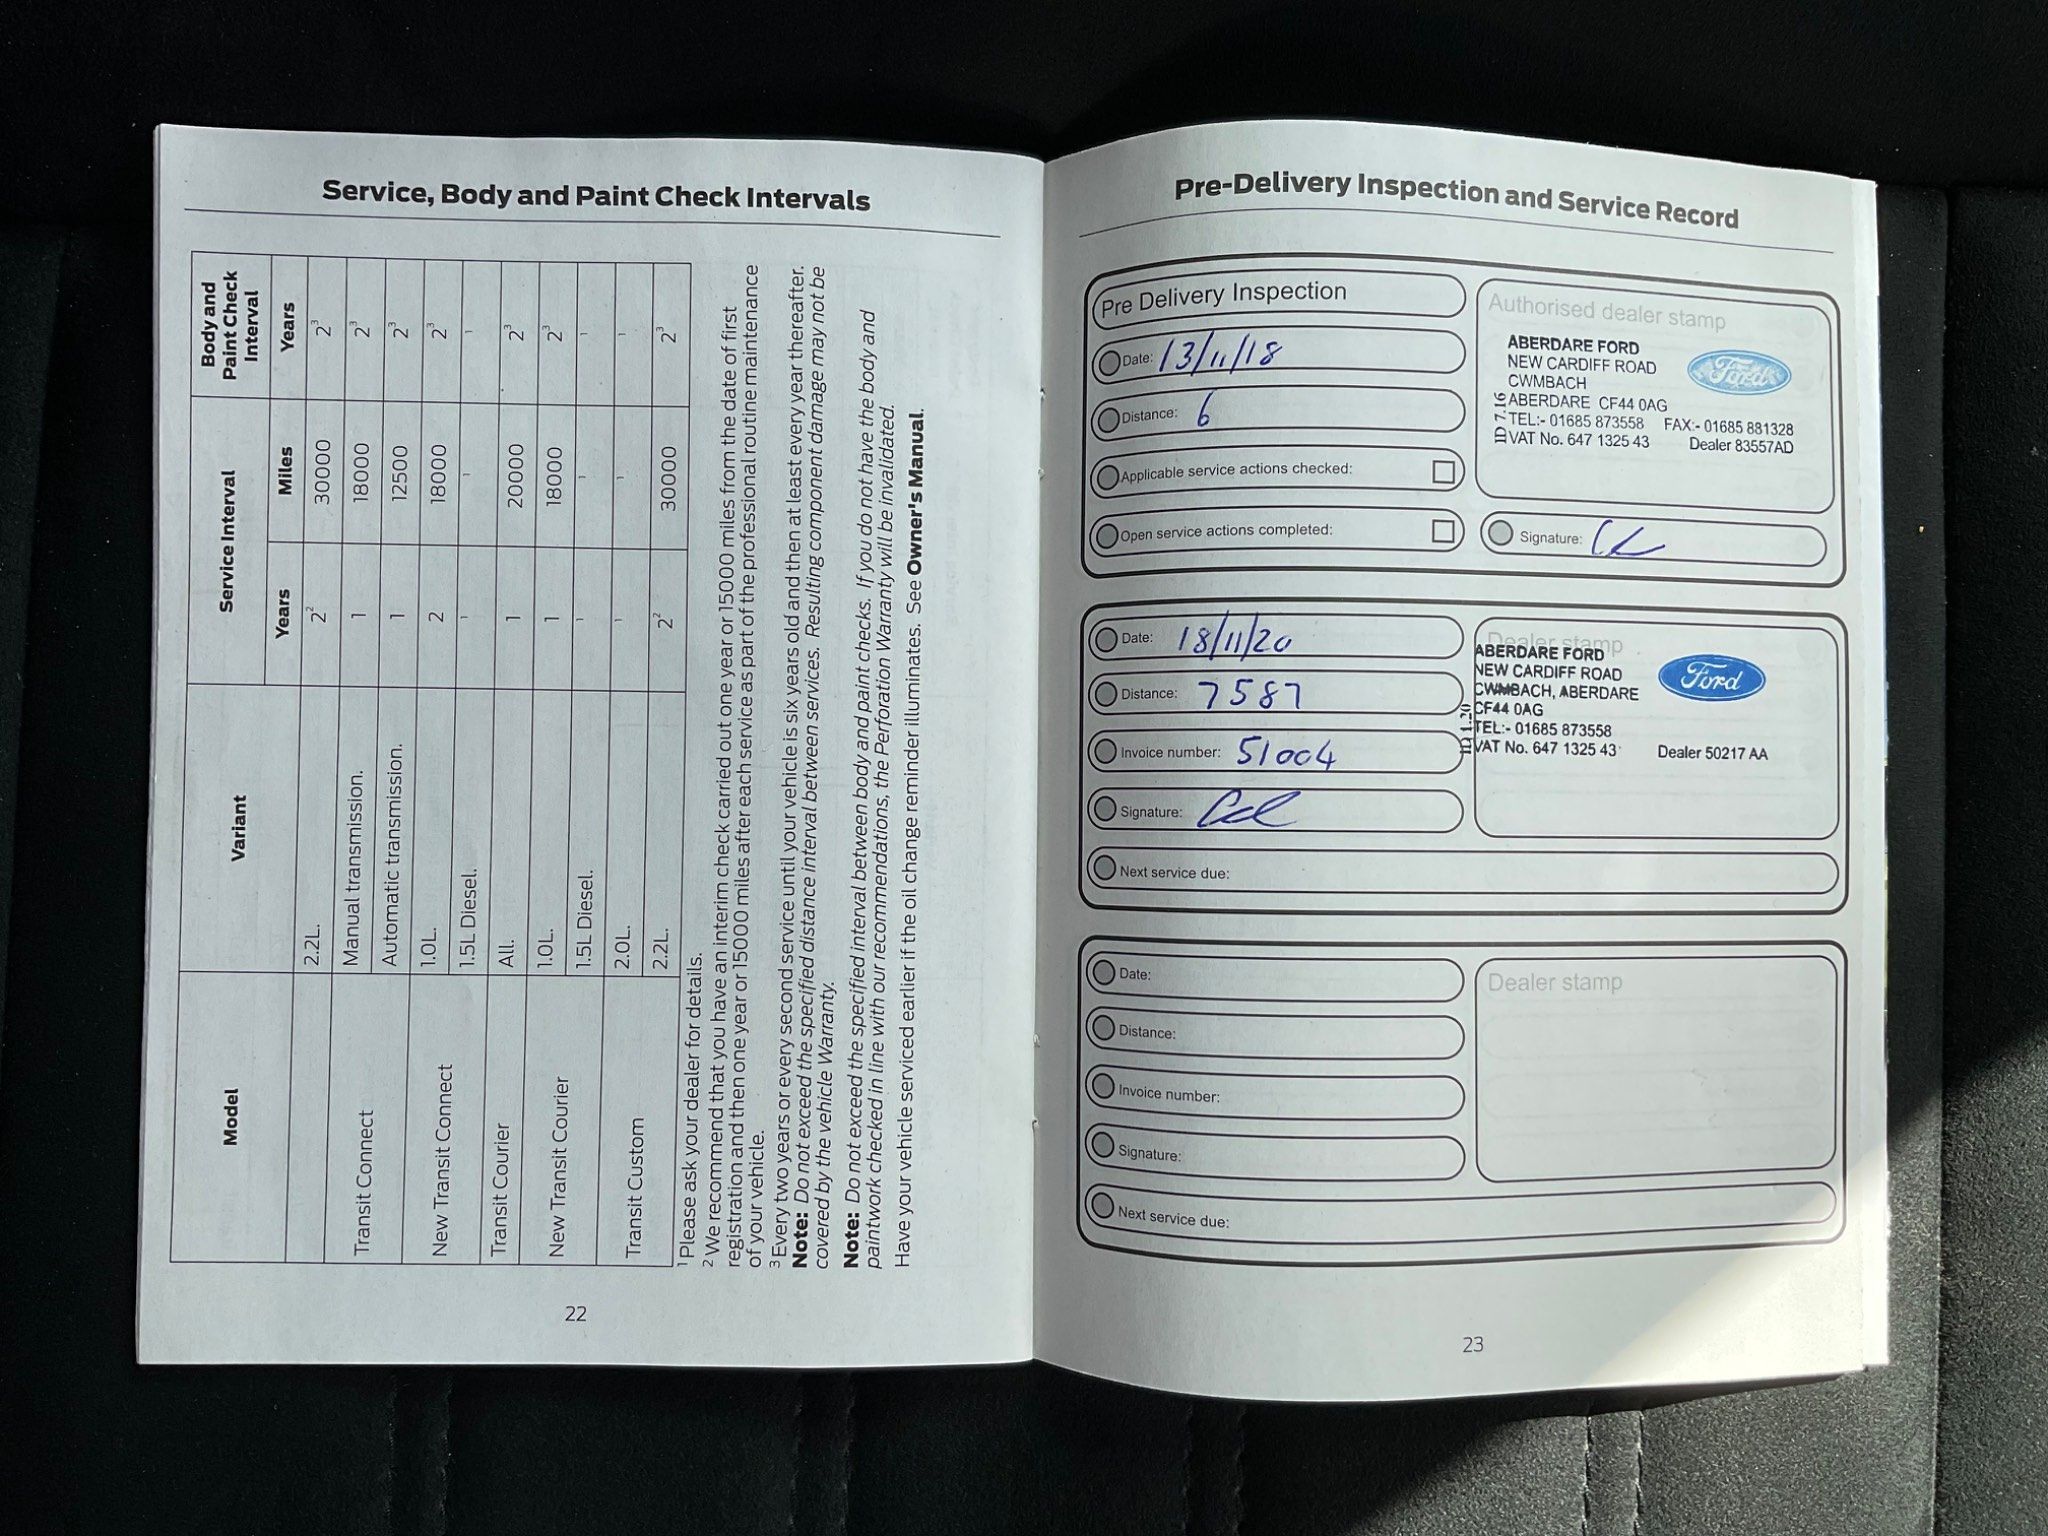 Service, Body and Paint Check Intervals
Model Variant Service Interval Body and Paint Check Interval
Years Miles Years
2.2L. 2² 30000 2³
Transit Connect Manual transmission. 1 18000 2³
Automatic transmission. 1 12500 2³
New Transit Connect 1.0L. 2 18000 2³
1.5L Diesel. ¹ ¹ ¹
Transit Courier All. 1 20000 2³
New Transit Courier 1.0L. 1 18000 2³
1.5L Diesel. ¹ ¹ ¹
Transit Custom 2.0L. ¹ ¹ ¹
2.2L. 2² 30000 2³
¹ Please ask your dealer for details.
² We recommend that you have an interim check carried out one year or 15000 miles from the date of first
registration and then one year or 15000 miles after each service as part of the professional routine maintenance
of your vehicle.
³ Every two years or every second service until your vehicle is six years old and then at least every year thereafter.
Note: Do not exceed the specified distance interval between services. Resulting component damage may not be
covered by the vehicle Warranty.
Note: Do not exceed the specified interval between body and paint checks. If you do not have the body and
paintwork checked in line with our recommendations, the Perforation Warranty will be invalidated.
Have your vehicle serviced earlier if the oil change reminder illuminates. See Owner's Manual.
22
Pre-Delivery Inspection and Service Record
Pre Delivery Inspection
Date: 13/11/18
Distance: 6
Applicable service actions checked:
Open service actions completed:
Authorised dealer stamp
ABERDARE FORD
NEW CARDIFF ROAD
CWMBACH
ABERDARE CF44 0AG
TEL:- 01685 873558 FAX:- 01685 881328
VAT No. 647 1325 43 Dealer 83557AD
ID 7.16
Ford
Signature:
Date: 18/11/20
Distance: 7587
Invoice number: 51004
Signature:
Next service due:
Dealer stamp
ABERDARE FORD
NEW CARDIFF ROAD
CWMBACH, ABERDARE
CF44 0AG
TEL:- 01685 873558
VAT No. 647 1325 43 Dealer 50217 AA
ID 1.20
Ford
Date:
Distance:
Invoice number:
Signature:
Next service due:
Dealer stamp
23